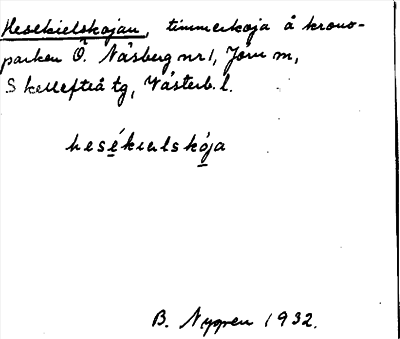 Hesekielskojan, timmerkoja å krono-
parken Ö. Näsberg nr 1, Jörn sn,
Skellefteå tg, Västerb. l.
hesékielskója
B. Nygren 1932.